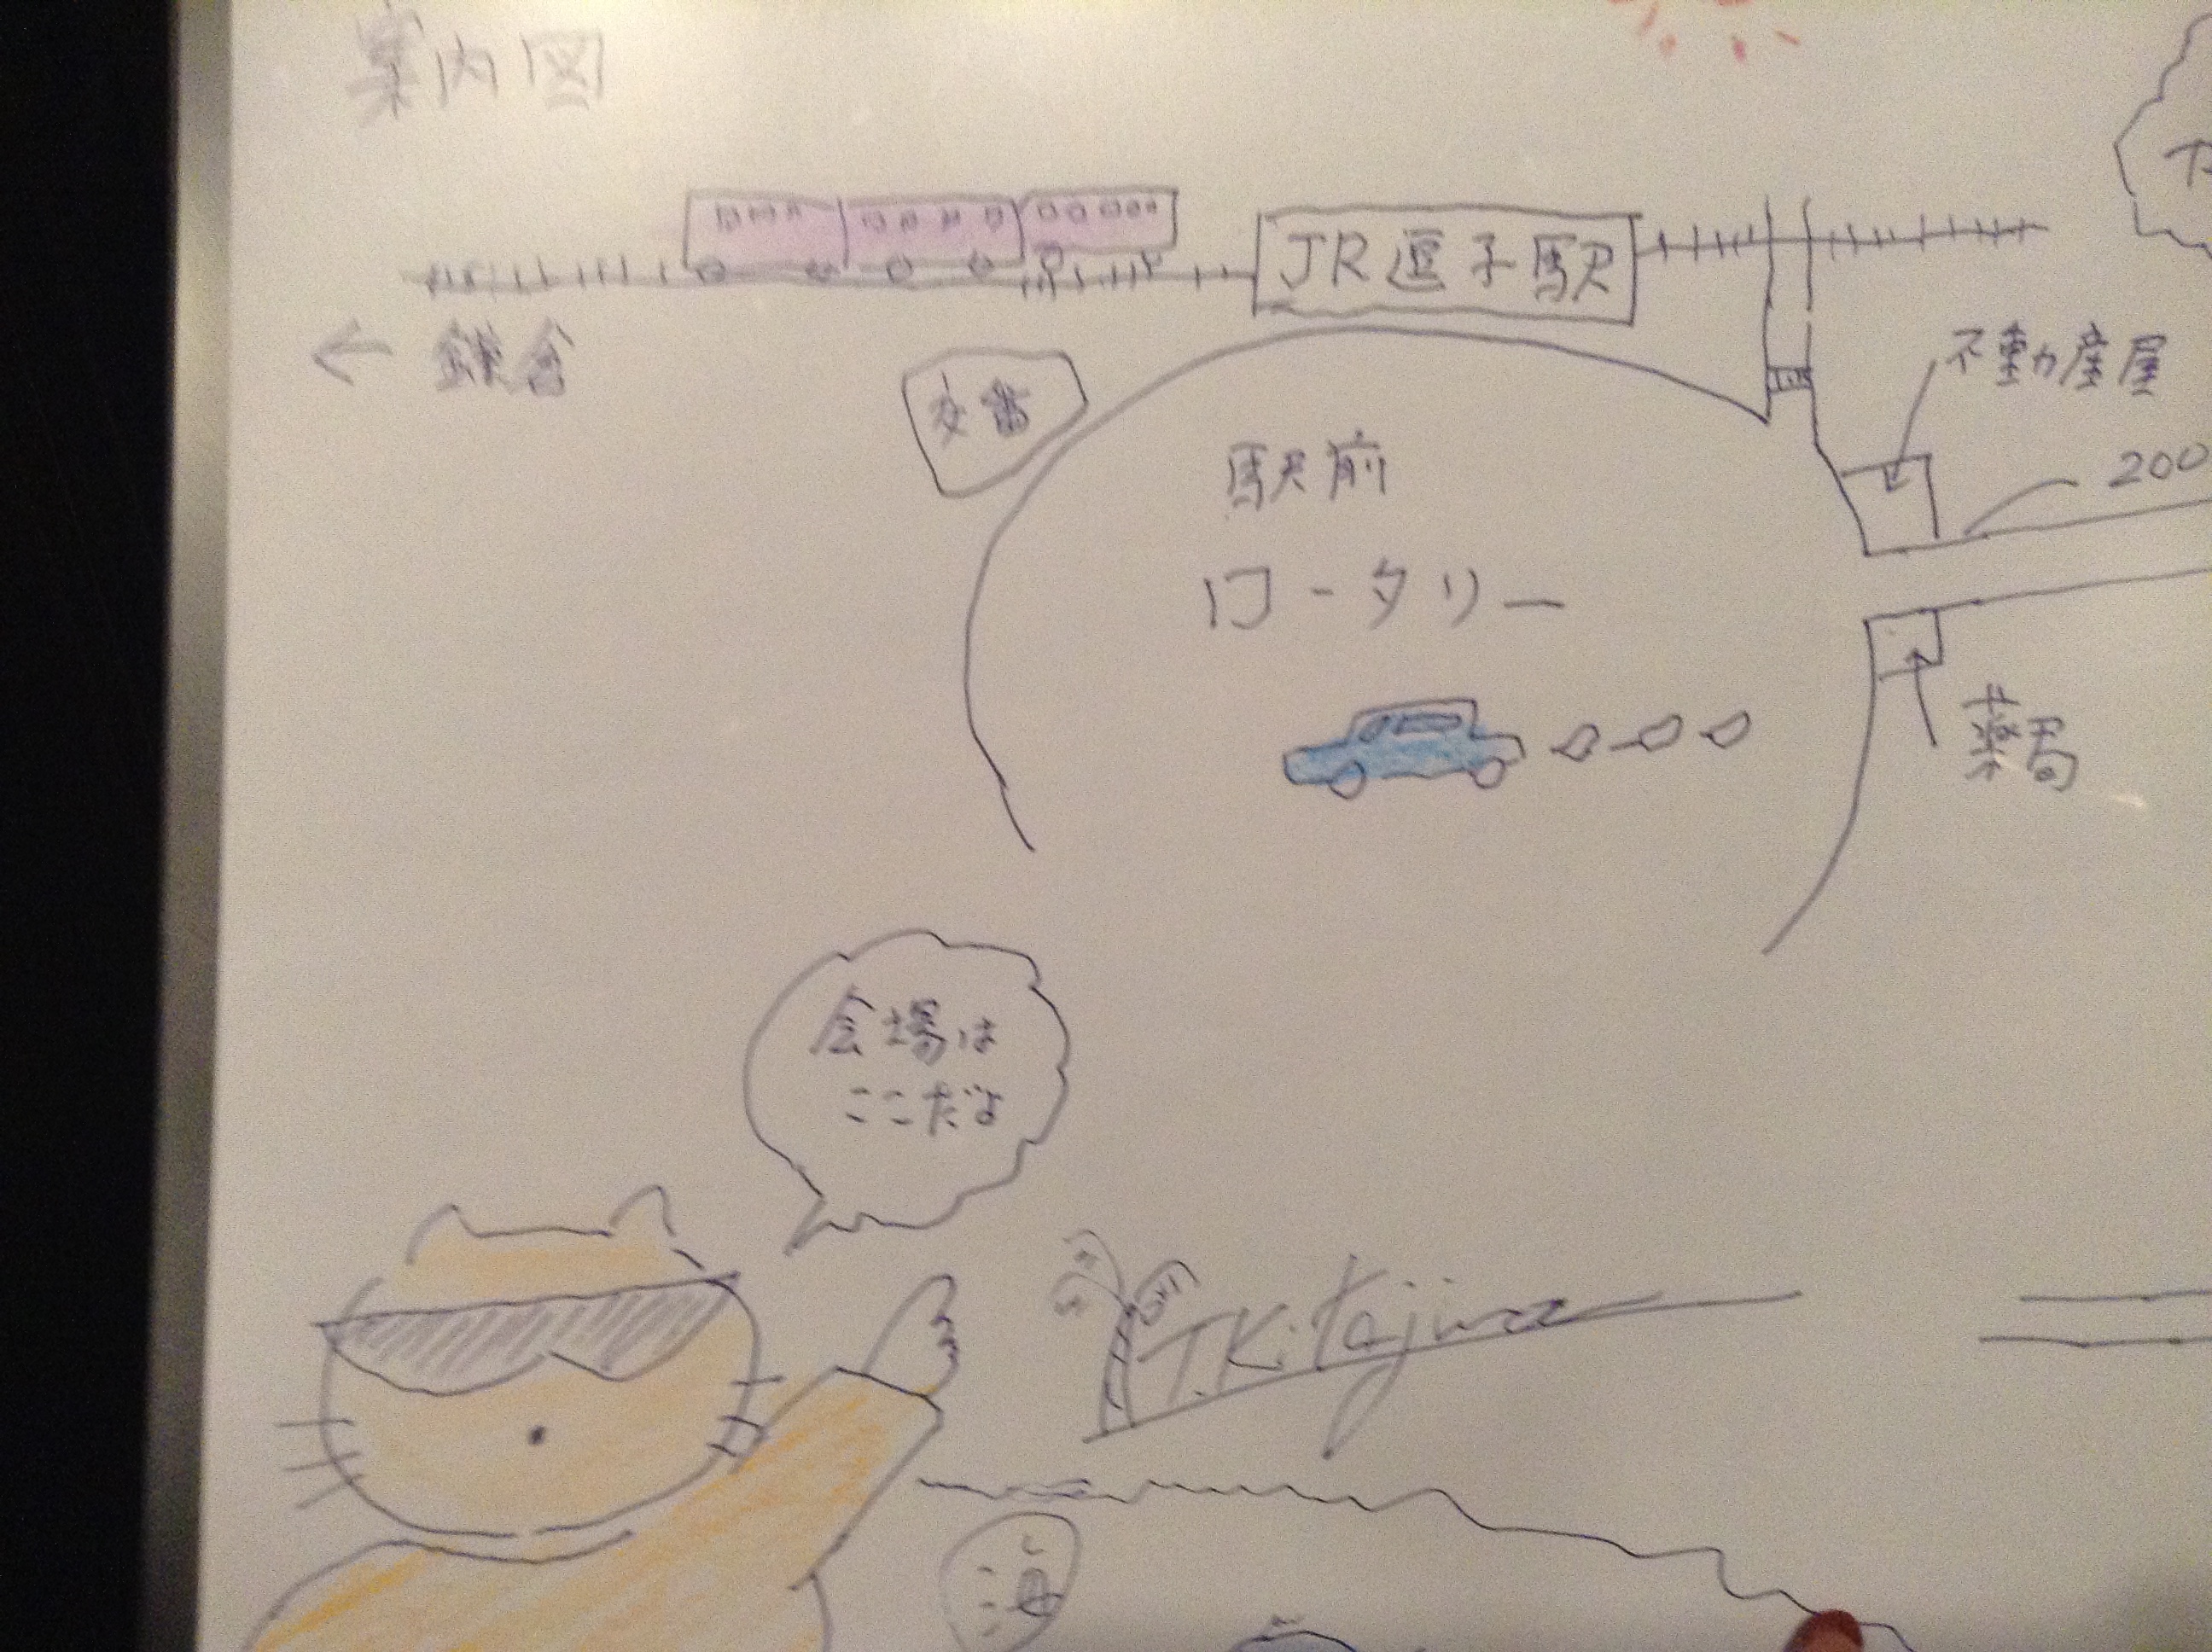 案内図
JR逗子駅
← 鎌倉
交番
不動産屋
駅前
ロータリー
200
薬局
会場は
ここだよ
T.Kitajima
海